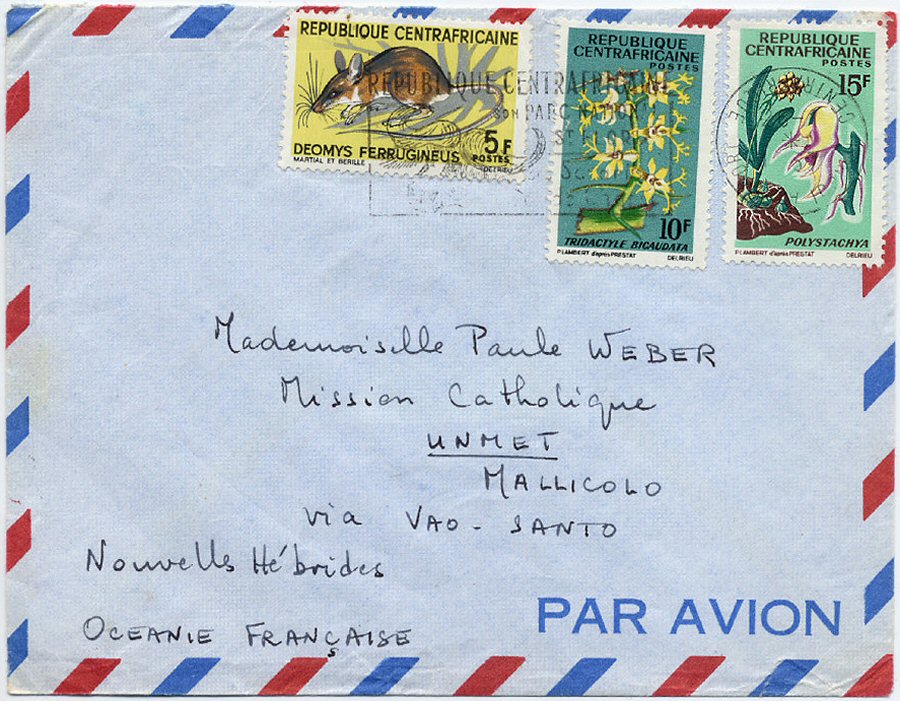 REPUBLIQUE CENTRAFRICAINE
DEOMYS FERRUGINEUS
5F
POSTES
MARTIAL ET BERILLE
DELRIEU
REPUBLIQUE
CENTRAFRICAINE
POSTES
10F
TRIDACTYLE BICAUDATA
P.LAMBERT d'après PRESTAT DELRIEU
REPUBLIQUE
CENTRAFRICAINE
POSTES
15F
POLYSTACHYA
P.LAMBERT d'après PRESTAT DELRIEU
REPUBLIQUE CENTRAFRICAINE
SON PARC NATION
ST FLORI
Mademoiselle Paule WEBER
Mission Catholique
UNMET
MALLICOLO
via VAO - SANTO
Nouvelles Hébrides
OCEANIE FRANÇAISE
PAR AVION